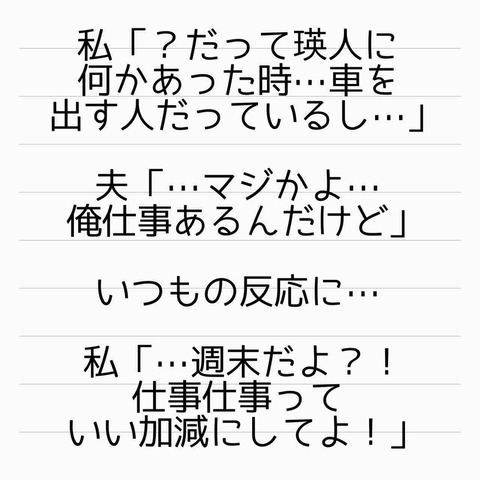 私「？だって瑛人に
何かあった時…車を
出す人だっているし…」
夫「…マジかよ…
俺仕事あるんだけど」
いつもの反応に…
私「…週末だよ？！
仕事仕事って
いい加減にしてよ！」